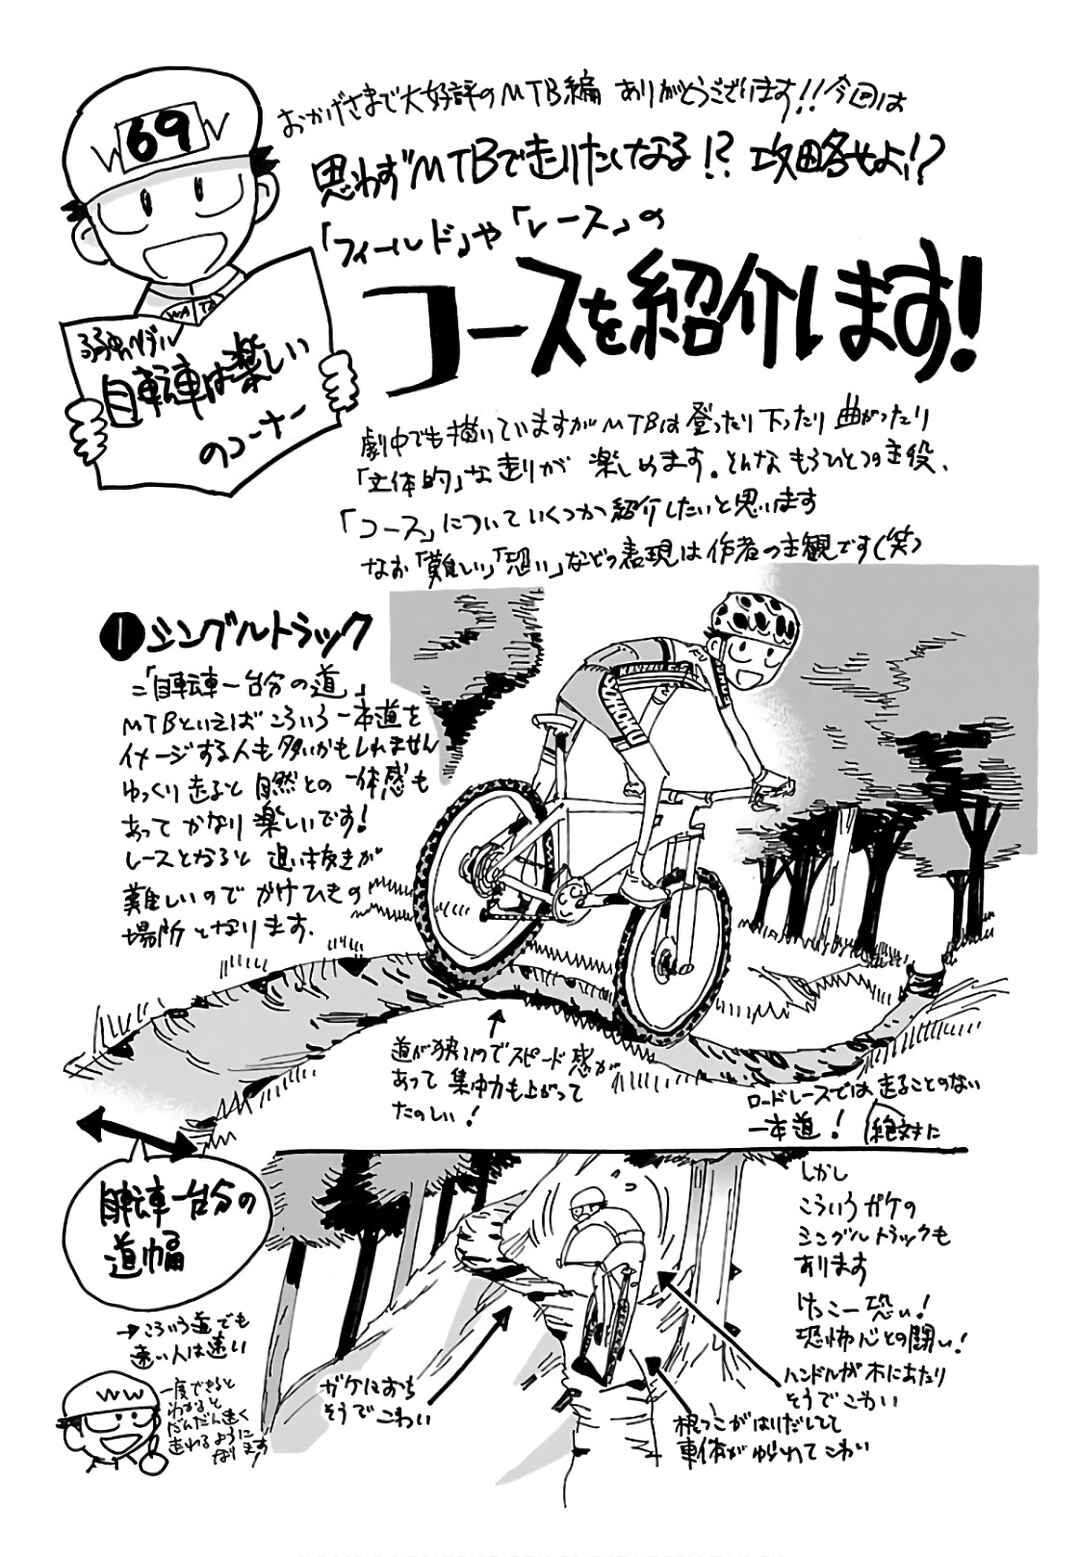 おかげさまで大好評のMTB編 ありがとうございます!!今回は
思わずMTBで走りたくなる!? 攻略せよ!?
「フィールド」や「レース」の
コースを紹介します!
69
弱虫ペダル
自転車は楽しい
のコーナー
劇中でも描いていますがMTBは登ったり下ったり曲がったり
「立体的」な走りが 楽しめます。そんな もうひとつの主役、
「コース」についていくつか紹介したいと思います
なお「難しい」「恐い」などの表現は作者の主観です(笑)
1 シングルトラック
=「自転車一台分の道」
MTBといえば こういう一本道を
イメージする人も多いかもしれません
ゆっくり走ると 自然との一体感も
あって かなり楽しいです!
レースとなると 追い抜きが
難しいので かけひきの
場所となります.
道が狭いのでスピード感が
あって 集中力も上がって
たのしい!
ロードレースでは走ることのない
一本道! 絶対に
自転車一台分の
道幅
→こういう道でも
速い人は速い
一度できると
わかると
だんだん速く
走れるように
なります
しかし
こういうガケの
シングルトラックも
あります
けっこー恐い!
恐怖心との闘い!
ハンドルが木にあたり
そうでこわい
ガケにおち
そうでこわい
根っこがはいだしてて
車体がゆられてこわい